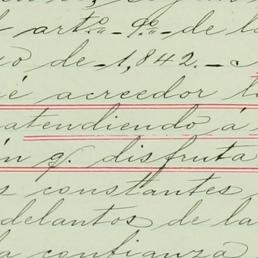 art.º 9º de la
de 1,842.
acreedor
atendiendo á
q. disfruta
constantes
delantos de la
la confianza